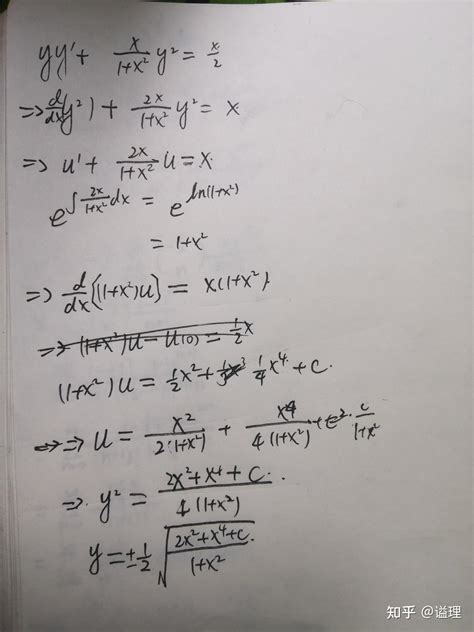 yy' + x/(1+x²) y² = x/2
⇒ d/dx(y²) + 2x/(1+x²) y² = x
⇒ u' + 2x/(1+x²) u = x.
e^(∫ 2x/(1+x²) dx) = e^(ln(1+x²))
= 1+x²
⇒ d/dx[(1+x²)u] = x(1+x²).
⇒ (1+x²)u - u(0) = ½x
(1+x²)u = ½x² + ¼x⁴ + c.
⇒ u = x²/(2(1+x²)) + x⁴/(4(1+x²)) + c/(1+x²)
⇒ y² = (2x²+x⁴+c)/(4(1+x²)).
y = ±½ √((2x²+x⁴+c)/(1+x²))
知乎 @谥理